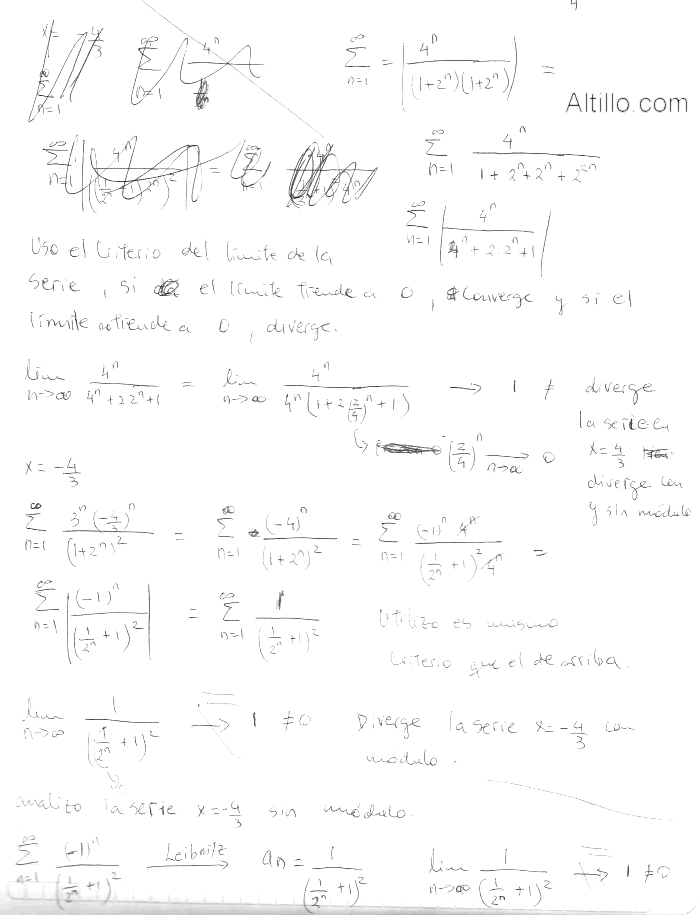 x = 4/3
∞ Σ n=1
∞ Σ n=1 4^n
∞ Σ n=1 = | 4^n / (1+2^n)(1+2^n) | =
Altillo.com
∞ Σ n=1 4^n / 1 + 2^n + 2^n + 2^2n
∞ Σ n=1 | 4^n / 4^n + 2.2^n + 1 |
Uso el Criterio del límite de la
serie, si el límite tiende a 0, converge y si el
límite no tiende a 0, diverge.
lim n→∞ 4^n / 4^n + 2 2^n + 1 = lim n→∞ 4^n / 4^n (1 + 2 (2/4)^n + 1) → 1 ≠ diverge
la serie en
(2/4)^n → n→∞ 0 x = 4/3
diverge con
y sin módulo
x = -4/3
∞ Σ n=1 3^n (-4/3)^n / (1+2^n)^2 = ∞ Σ n=1 (-4)^n / (1+2^n)^2 = ∞ Σ n=1 (-1)^n 4^n / (1/2^n + 1)^2 4^n =
∞ Σ n=1 | (-1)^n / (1/2^n + 1)^2 | = ∞ Σ n=1 1 / (1/2^n + 1)^2 Utilizo es mismo
Criterio que el de arriba.
lim n→∞ 1 / (1/2^n + 1)^2 → 1 ≠ 0 Diverge la serie x = -4/3 con
módulo.
analizo la serie x = -4/3 sin módulo.
∞ Σ n=1 (-1)^n / (1/2^n + 1)^2 Leibnitz → an = 1 / (1/2^n + 1)^2 lim n→∞ 1 / (1/2^n + 1)^2 → 1 ≠ 0